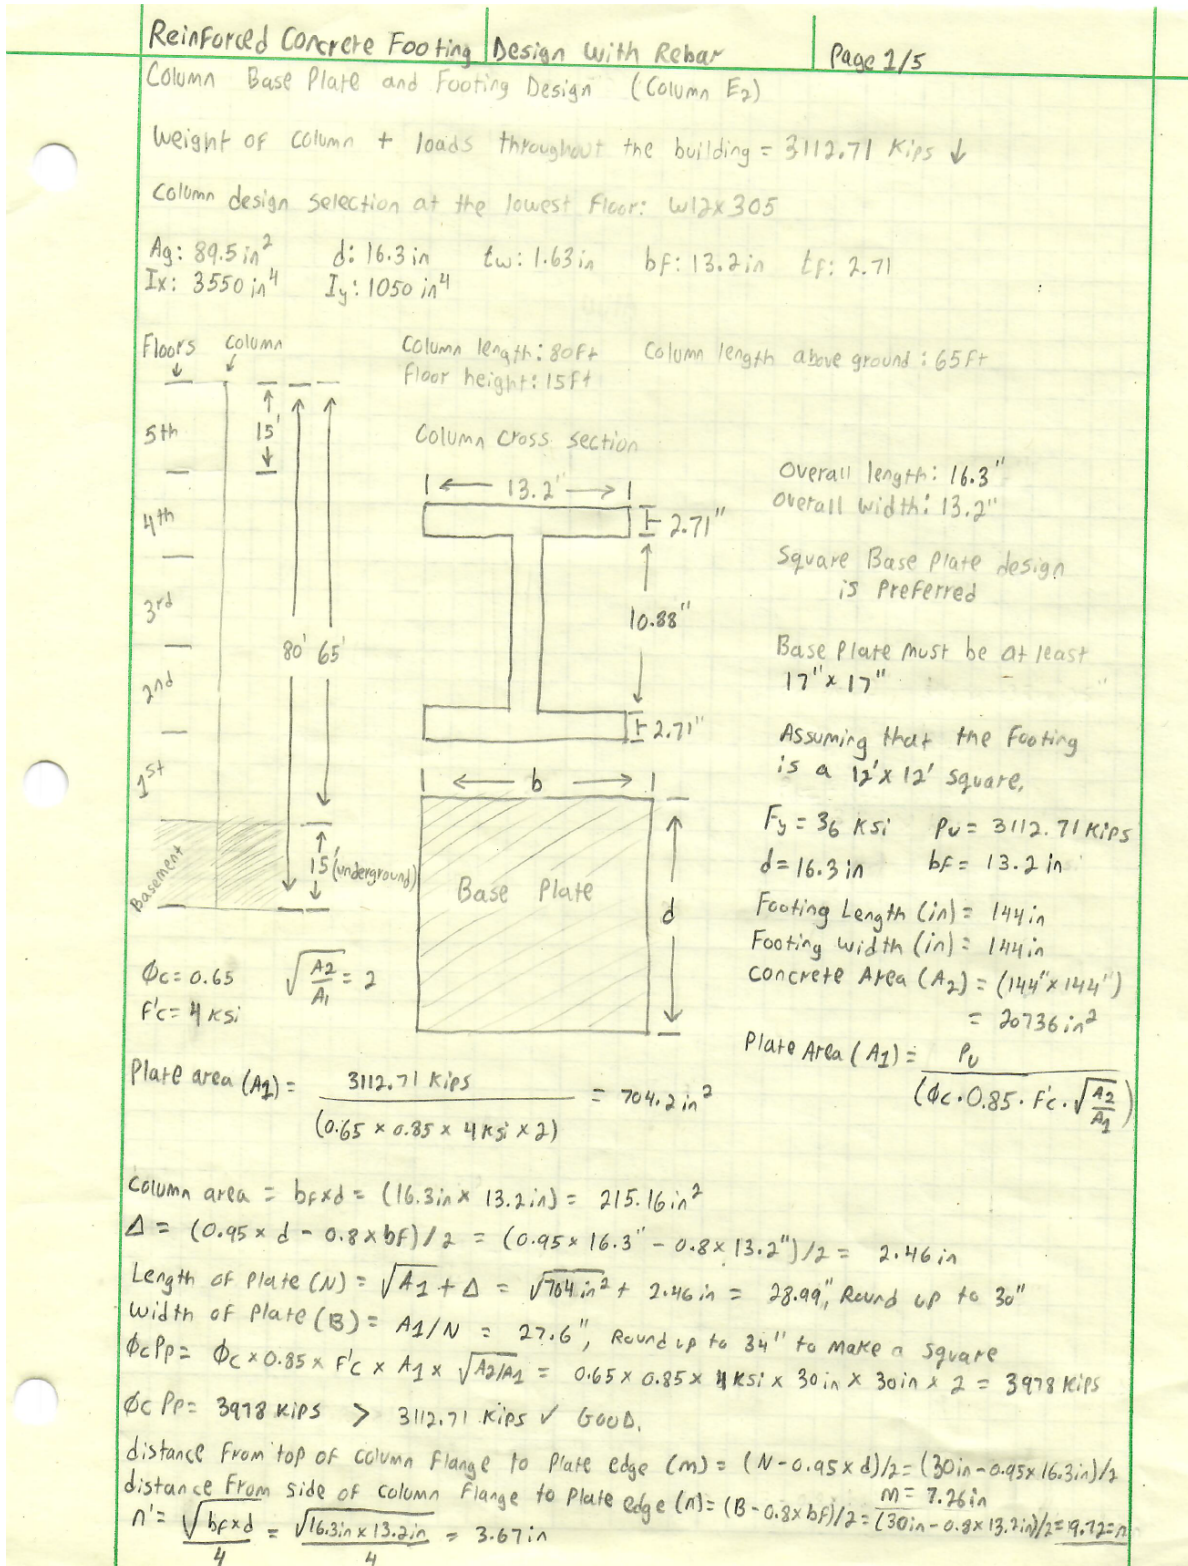 Reinforced Concrete Footing Design With Rebar Page 1/5
Column Base Plate and Footing Design (Column E2)
Weight of column + loads throughout the building = 3112.71 Kips ↓
Column design selection at the lowest floor: W12x305
Ag: 89.5 in² d: 16.3 in tw: 1.63 in bf: 13.2 in tf: 2.71
Ix: 3550 in⁴ Iy: 1050 in⁴
Floors Column
Column length: 80ft Column length above ground: 65ft
Floor height: 15ft
5th 15'
Column Cross section
Overall length: 16.3"
Overall width: 13.2"
13.2"
4th
2.71"
Square Base Plate design
is Preferred
3rd
10.88"
80' 65'
Base Plate must be at least
17" x 17"
2nd
2.71"
Assuming that the footing
is a 12' x 12' square,
1st
b
Fy = 36 Ksi Pu = 3112.71 Kips
d = 16.3 in bf = 13.2 in
Basement
15' (underground)
Base Plate
d
Footing Length (in) = 144 in
Footing Width (in) = 144 in
Concrete Area (A2) = (144" x 144")
= 20736 in²
Φc = 0.65 √A2/A1 = 2
F'c = 4 Ksi
Plate Area (A1) = Pu / (Φc · 0.85 · F'c · √A2/A1)
Plate area (A1) = 3112.71 Kips / (0.65 x 0.85 x 4 Ksi x 2) = 704.2 in²
Column area = bf x d = (16.3in x 13.2in) = 215.16 in²
Δ = (0.95 x d - 0.8 x bf)/2 = (0.95 x 16.3" - 0.8 x 13.2")/2 = 2.46 in
Length of Plate (N) = √A1 + Δ = √704 in² + 2.46 in = 28.99", Round up to 30"
Width of Plate (B) = A1/N = 27.6", Round up to 34" to make a square
ΦcPp = Φc x 0.85 x F'c x A1 x √A2/A1 = 0.65 x 0.85 x 4 Ksi x 30 in x 30 in x 2 = 3978 Kips
Φc Pp = 3978 Kips > 3112.71 Kips ✓ GOOD.
distance from top of column flange to Plate edge (m) = (N - 0.95 x d)/2 = (30in - 0.95 x 16.3in)/2
m = 7.26in
distance from side of column flange to Plate edge (n) = (B - 0.8 x bf)/2 = (30in - 0.8 x 13.2in)/2 = 9.72 = n
n' = √bf x d / 4 = √16.3in x 13.2in / 4 = 3.67 in